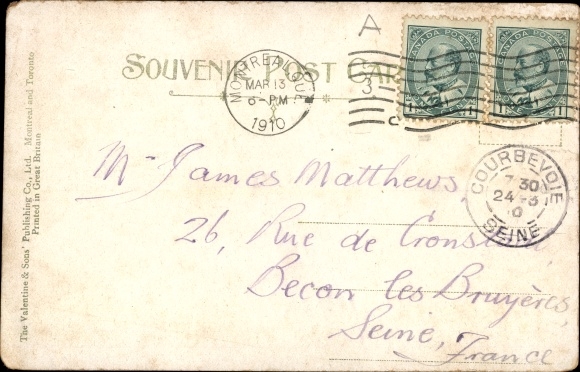 A
SOUVENIR POST CAR
MONTREAL QUE
MAR 13
6-PM
1910
3
C
CANADA POSTAGE
CANADA POSTAGE
COURBEVOIE
7 30
24 -3
10
SEINE
Mr James Matthews,
26, Rue de Cronstadt
Becon les Bruyères,
Seine, France
The Valentine & Sons' Publishing Co., Ltd. Montreal and Toronto
Printed in Great Britain